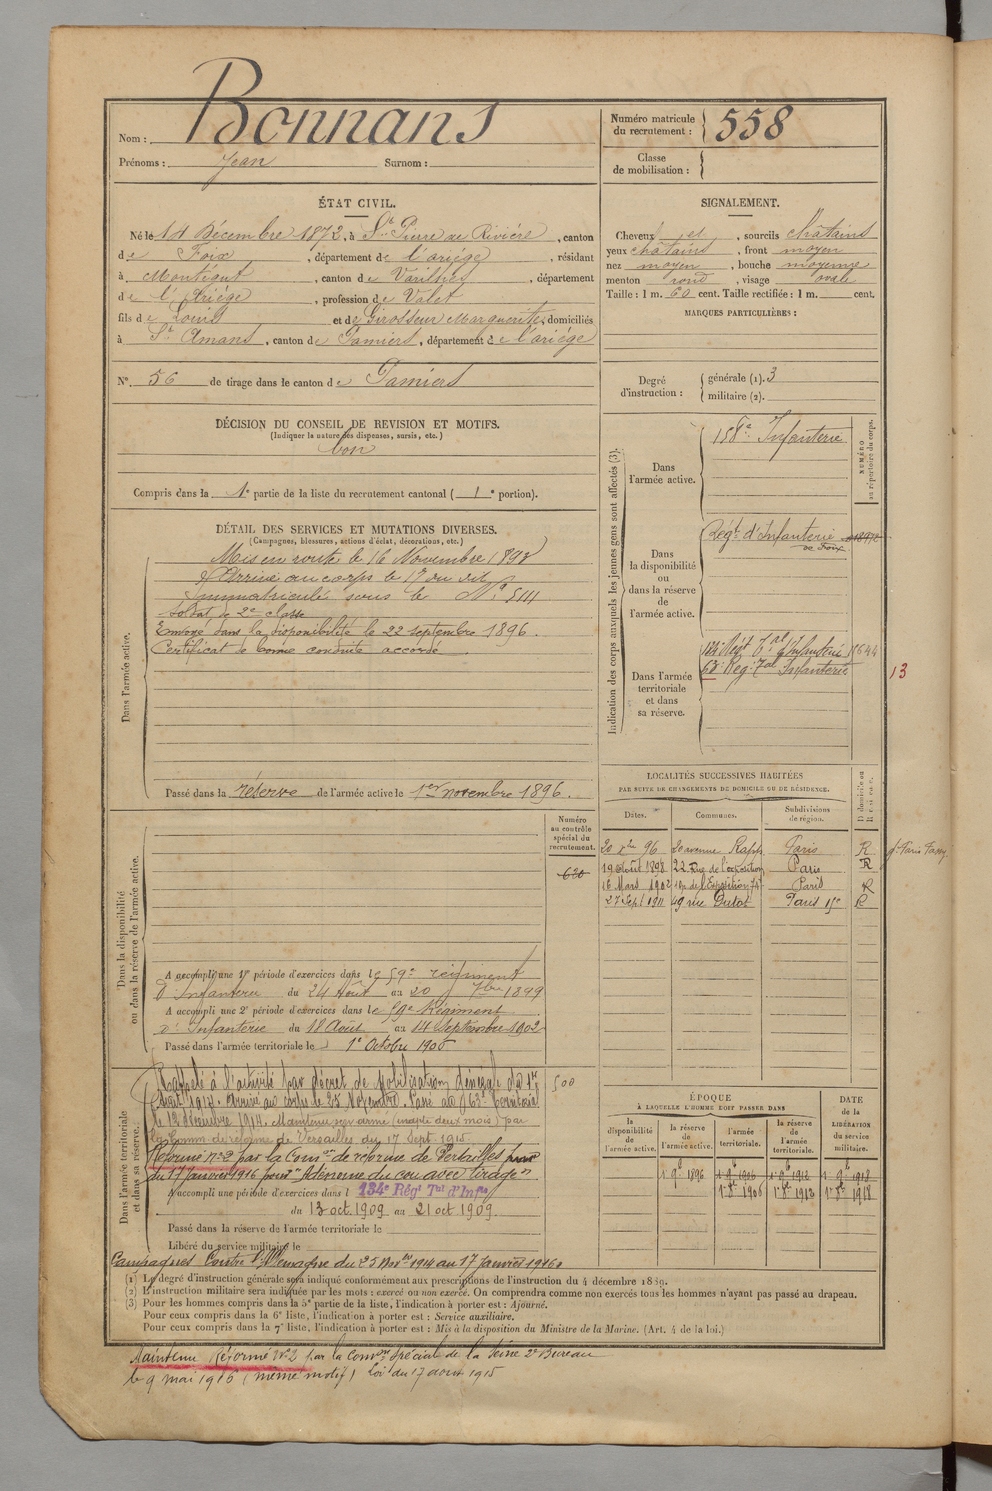 Nom : Bonnans
Prénoms : Jean Surnom :
Numéro matricule
du recrutement : 558
Classe
de mobilisation :
ÉTAT CIVIL.
Né le 14 Décembre 1872, à St Pierre de Rivière, canton
de Foix, département de l'ariège, résidant
à Montégut, canton de Varilhes, département
de l'Ariège, profession de Valet
fils de Louis et de Girosseur Marguerite, domiciliés
à St Amans, canton de Pamiers, département de l'ariège
N° 56 de tirage dans le canton de Pamiers
SIGNALEMENT.
Cheveux et, sourcils châtains
yeux châtains, front moyen
nez moyen, bouche moyenne
menton rond, visage ovale
Taille : 1 m. 60 cent. Taille rectifiée : 1 m. cent.
MARQUES PARTICULIÈRES :
Degré
d'instruction :
générale (1). 3
militaire (2).
DÉCISION DU CONSEIL DE REVISION ET MOTIFS.
(Indiquer la nature des dispenses, sursis, etc.)
bon
Compris dans la 1e partie de la liste du recrutement cantonal ( 1e portion).
DÉTAIL DES SERVICES ET MUTATIONS DIVERSES.
(Campagnes, blessures, actions d'éclat, décorations, etc.)
Dans l'armée active.
Mis en route le 16 Novembre 1893
Arrivé au corps le 17 du dit
Immatriculé sous le N° 5111
soldat de 2e classe
Envoyé dans la disponibilité le 22 septembre 1896.
Certificat de bonne conduite accordé.
Passé dans la réserve de l'armée active le 1er novembre 1896.
Indication des corps auxquels les jeunes gens sont affectés (3).
NUMÉRO
au répertoire du corps.
Dans
l'armée active.
158e Infanterie
Dans
la disponibilité
ou
dans la réserve
de
l'armée active.
Régt d'Infanterie
de Foix
Dans l'armée
territoriale
et dans
sa réserve.
134 Régt Tal d'Infanterie
63e Reg. Tal Infanterie
13
LOCALITÉS SUCCESSIVES HABITÉES
PAR SUITE DE CHANGEMENTS DE DOMICILE OU DE RÉSIDENCE.
Dates. Communes. Subdivisions de région. D domicile ou R résidence.
20 Xbre 96 20 avenue Rapp Paris R
19 Août 1898 22 Rue de l'exposition Paris R
16 Mars 1902 de l'Exposition Paris R
27 Sept 1911 49 rue Dutot Paris 15e R
Dans la disponibilité
ou dans la réserve de l'armée active.
Numéro
au contrôle
spécial du
recrutement.
620
A accompli une 1re période d'exercices dans le 59e régiment
d'Infanterie du 24 Août au 20 7bre 1899
A accompli une 2e période d'exercices dans le 59e Régiment
d'Infanterie du 18 Août au 14 Septembre 1902
Passé dans l'armée territoriale le 1er Octobre 1906
Dans l'armée territoriale
et dans sa réserve.
500
Rappelé à l'activité par décret de Mobilisation générale du 1er
Août 1914. Arrivé au corps le 25 Novembre. Passé au 63e Territorial
le 12 décembre 1914. Maintenu serv armé (inapte deux mois) par
la Comm. de réforme de Versailles du 17 Sept. 1915.
Réformé n° 2 par la Comon de réforme de Versailles
du 17 Janvier 1916 pour "Adénome du cou avec tirage"
A accompli une période d'exercices dans l 134e Régt Tal d'Infie
du 13 oct. 1909 au 21 oct 1909.
Passé dans la réserve de l'armée territoriale le
Libéré du service militaire le
Campagnes Contre l'Allemagne du 25 Nov 1914 au 17 Janvier 1916.
ÉPOQUE
À LAQUELLE L'HOMME DOIT PASSER DANS
DATE
de la
LIBÉRATION
du service
militaire.
la disponibilité de l'armée active. la réserve de l'armée active. l'armée territoriale. la réserve de l'armée territoriale.
1 9bre 1896 1 9bre 1906 1 9bre 1912 1 9bre 1918
1 8bre 1906 1 8bre 1912 1 8bre 1918
(1) Le degré d'instruction générale sera indiqué conformément aux prescriptions de l'instruction du 4 décembre 1889.
(2) L'instruction militaire sera indiquée par les mots : exercé ou non exercé. On comprendra comme non exercés tous les hommes n'ayant pas passé au drapeau.
(3) Pour les hommes compris dans la 5e partie de la liste, l'indication à porter est : Ajourné.
Pour ceux compris dans la 6e liste, l'indication à porter est : Service auxiliaire.
Pour ceux compris dans la 7e liste, l'indication à porter est : Mis à la disposition du Ministre de la Marine. (Art. 4 de la loi.)
Maintenu Réformé N° 2 par la Comon spéciale de la Seine 2e Bureau
le 9 mai 1916 (même motif) Loi du 17 août 1915